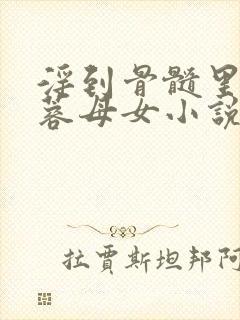 淫到骨髓里
蓉母女小说
拉賈斯坦邦阿